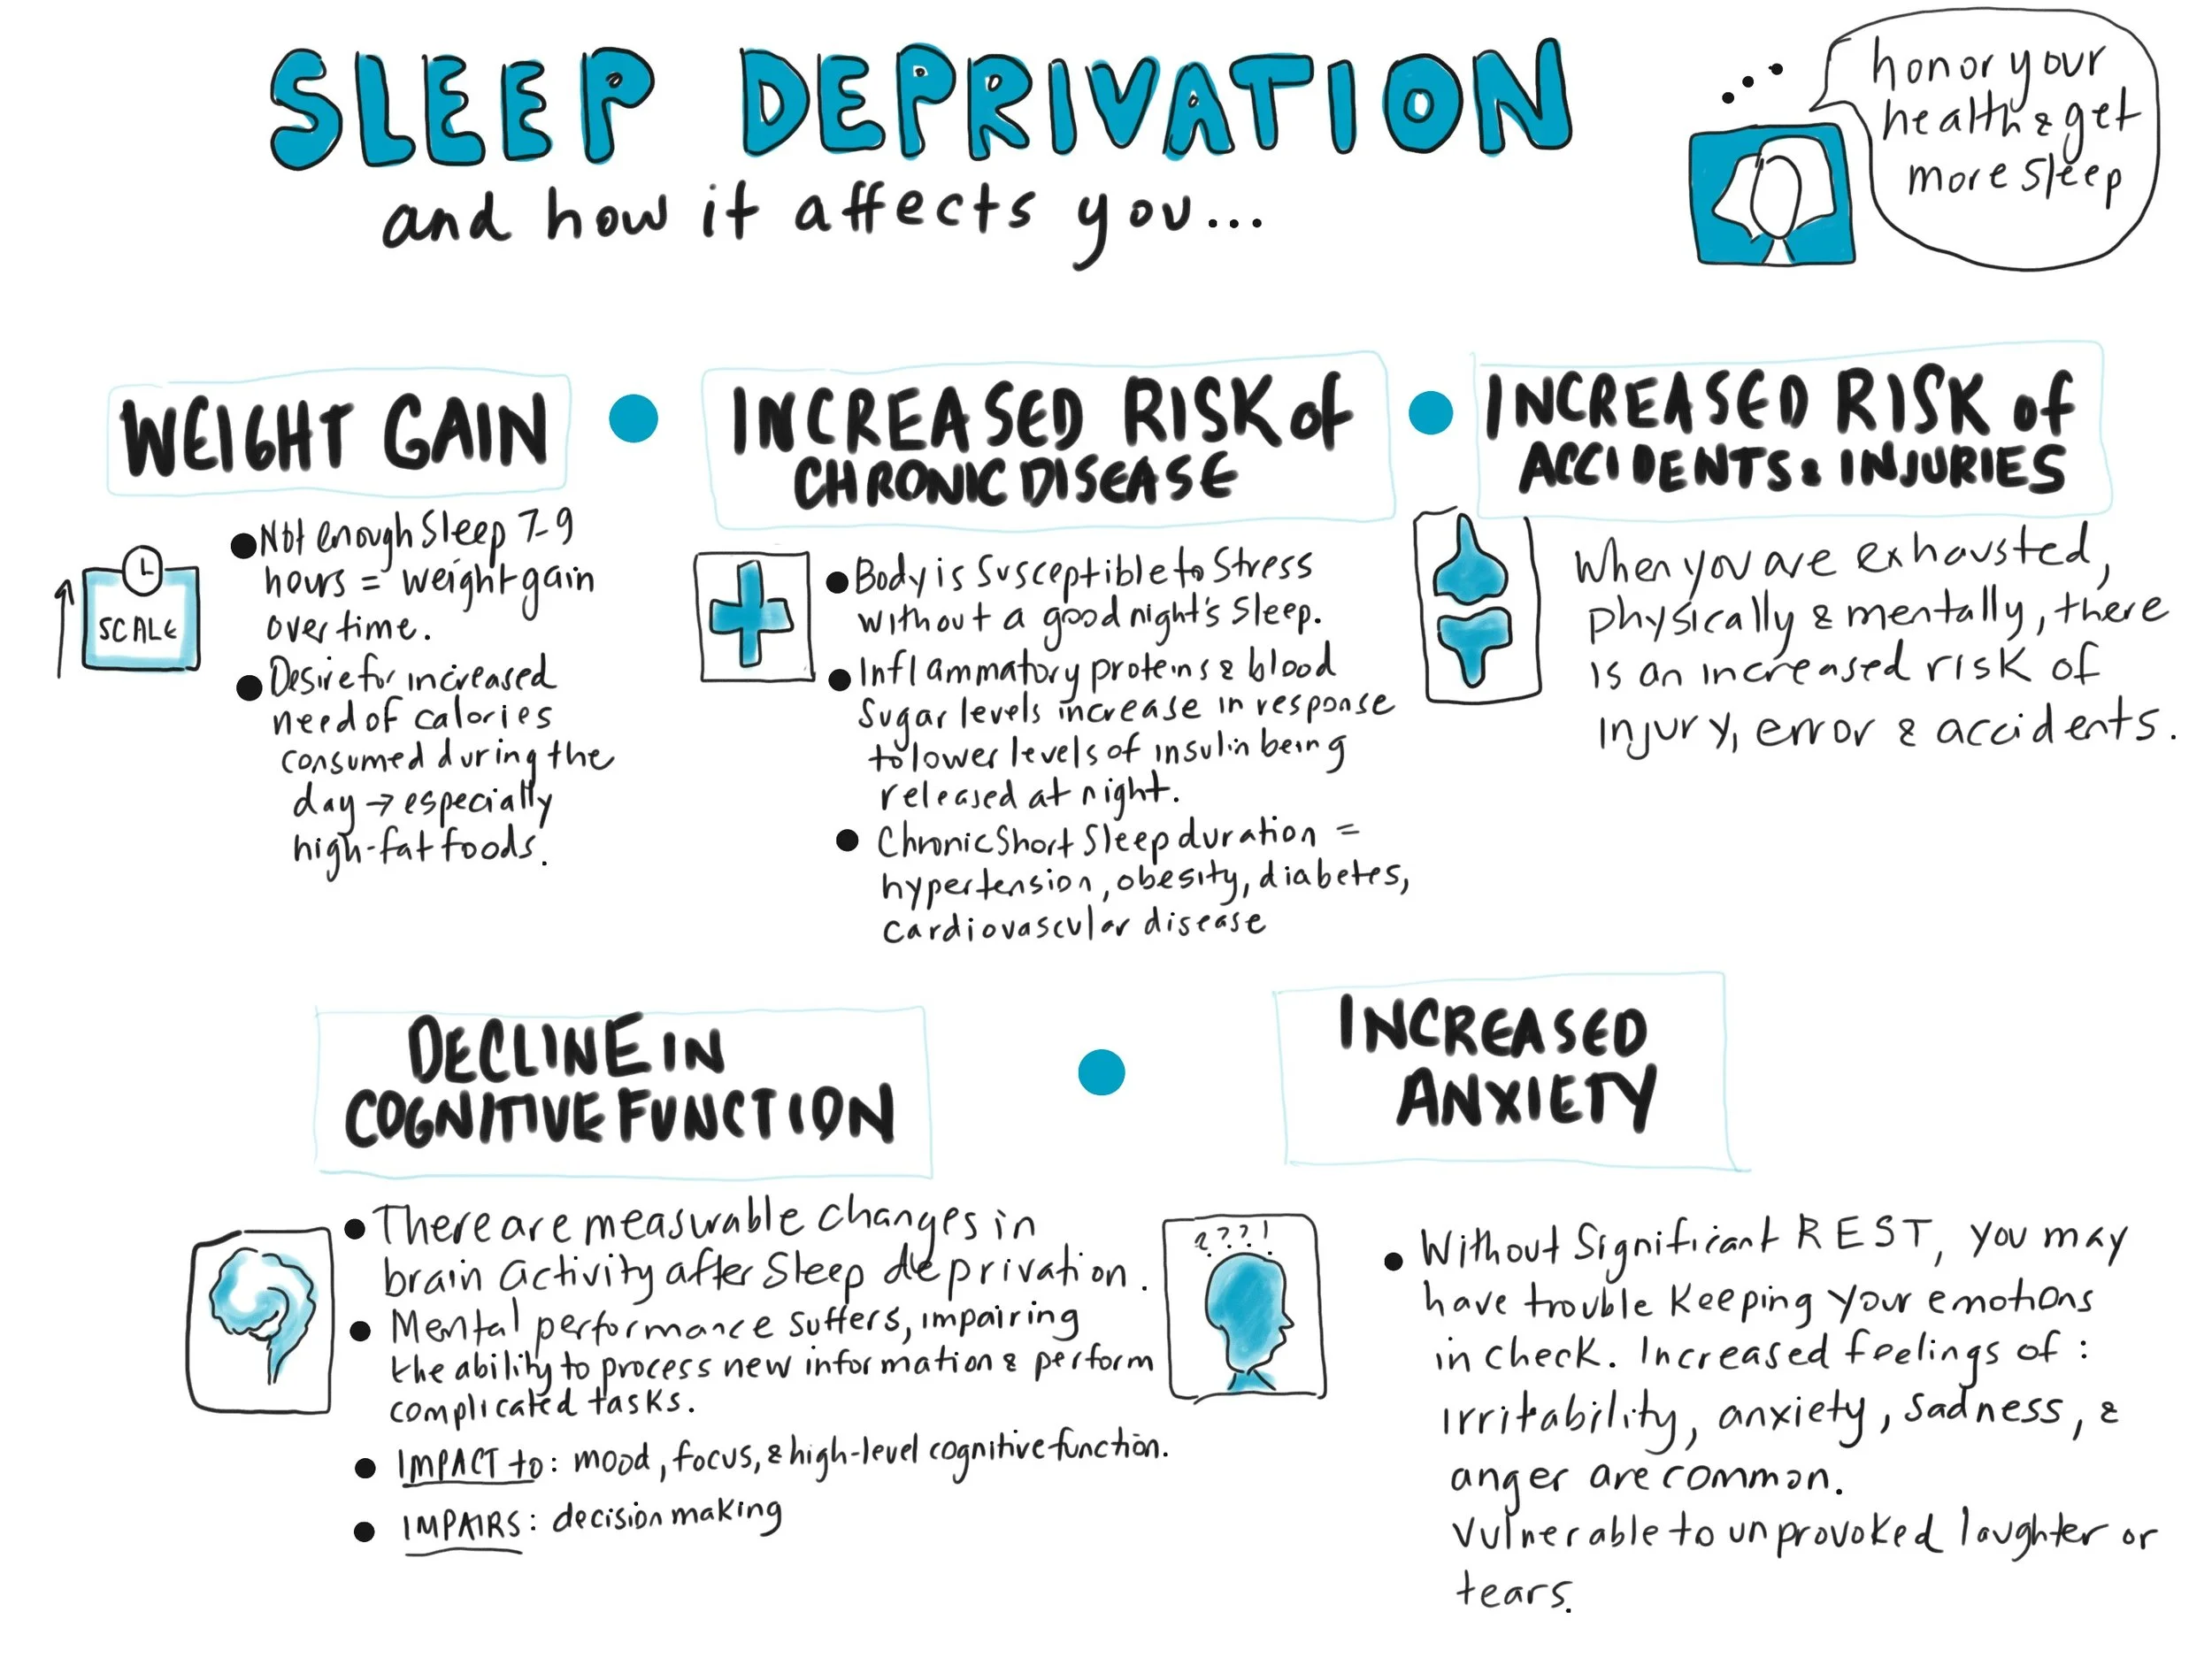 SLEEP DEPRIVATION
and how it affects you...
honor your
health & get
more sleep
WEIGHT GAIN
Not enough Sleep 7-9
hours = weight gain
over time.
Desire for increased
need of calories
consumed during the
day → especially
high-fat foods.
SCALE
INCREASED RISK of
CHRONIC DISEASE
Body is Susceptible to Stress
without a good night's sleep.
Inflammatory proteins & blood
Sugar levels increase in response
to lower levels of insulin being
released at night.
Chronic Short Sleep duration =
hypertension, obesity, diabetes,
cardiovascular disease
INCREASED RISK of
ACCIDENTS & INJURIES
When you are exhausted,
physically & mentally, there
is an increased risk of
injury, error & accidents.
DECLINE IN
COGNITIVE FUNCTION
There are measurable changes in
brain activity after Sleep deprivation.
Mental performance suffers, impairing
the ability to process new information & perform
complicated tasks.
IMPACT to: mood, focus, & high-level cognitive function.
IMPAIRS: decision making
INCREASED
ANXIETY
????!
Without Significant REST, you may
have trouble keeping your emotions
in check. Increased feelings of:
irritability, anxiety, sadness, &
anger are common.
Vulnerable to unprovoked laughter or
tears.